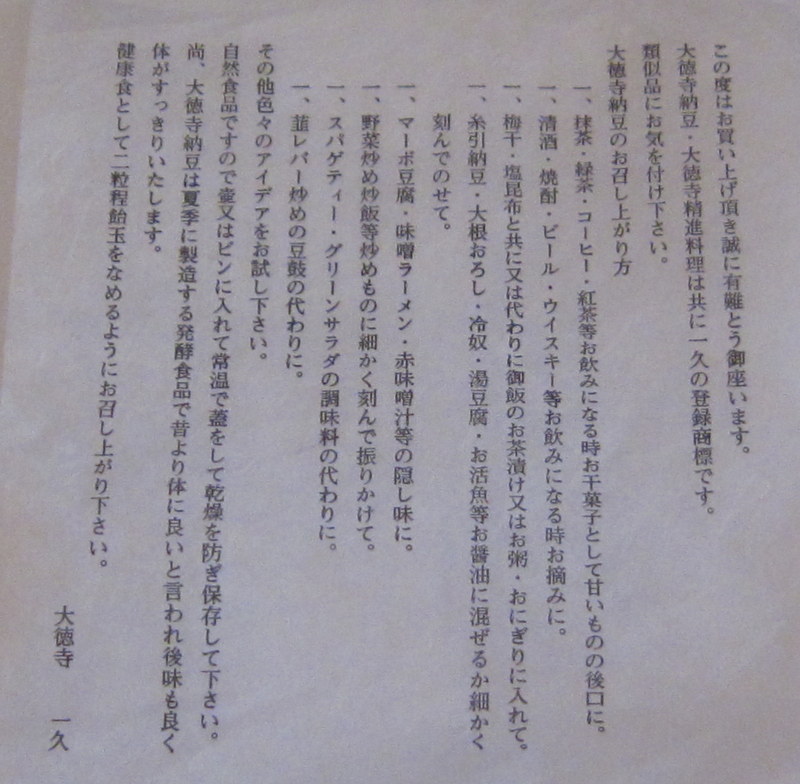 この度はお買い上げ頂き誠に有難とう御座います。
大徳寺納豆・大徳寺精進料理は共に一久の登録商標です。
類似品にお気を付け下さい。
大徳寺納豆のお召し上がり方
一、抹茶・緑茶・コーヒー・紅茶等お飲みになる時お干菓子として甘いものの後口に。
一、清酒・焼酎・ビール・ウイスキー等お飲みになる時お摘みに。
一、梅干・塩昆布と共に又は代わりに御飯のお茶漬け又はお粥・おにぎりに入れて。
一、糸引納豆・大根おろし・冷奴・湯豆腐・お活魚等お醤油に混ぜるか細かく
刻んでのせて。
一、マーボ豆腐・味噌ラーメン・赤味噌汁等の隠し味に。
一、野菜炒め炒飯等炒めものに細かく刻んで振りかけて。
一、スパゲティー・グリーンサラダの調味料の代わりに。
一、韮レバー炒めの豆鼓の代わりに。
その他色々のアイデアをお試し下さい。
自然食品ですので壷又はビンに入れて常温で蓋をして乾燥を防ぎ保存して下さい。
尚、大徳寺納豆は夏季に製造する発酵食品で昔より体に良いと言われ後味も良く
体がすっきりいたします。
健康食として二粒程飴玉をなめるようにお召し上がり下さい。
大徳寺 一久